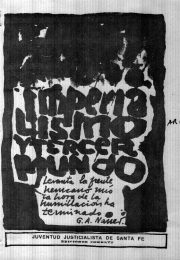 imperia
lismo
y tercer
mundo
Levanta la frente
hermano mio
la hora de la
humillación ha
terminado
G.A. Nasser.
JUVENTUD JUSTICIALISTA DE SANTA FE